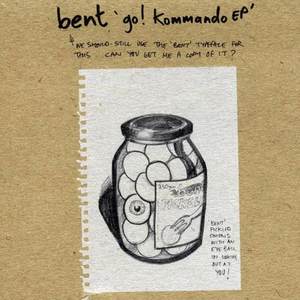 bent 'go! Kommando EP'
WE SHOULD STILL USE THE 'BENT' TYPEFACE FOR
THIS. CAN YOU GET ME A COPY OF IT?
PICKLED
BENT'
PICKLED
ONIONS
WITH AN
EYE BALL
OUT AT
YOU!